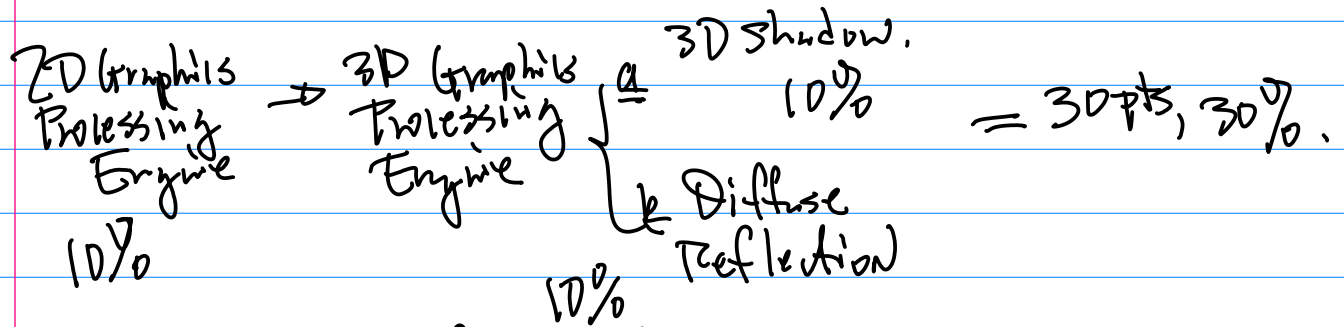 2D Graphics Processing Engine
10%
→ 3D Graphics Processing Engine
a 3D Shadow.
10%
b Diffuse Reflection
10%
= 30pts, 30%.